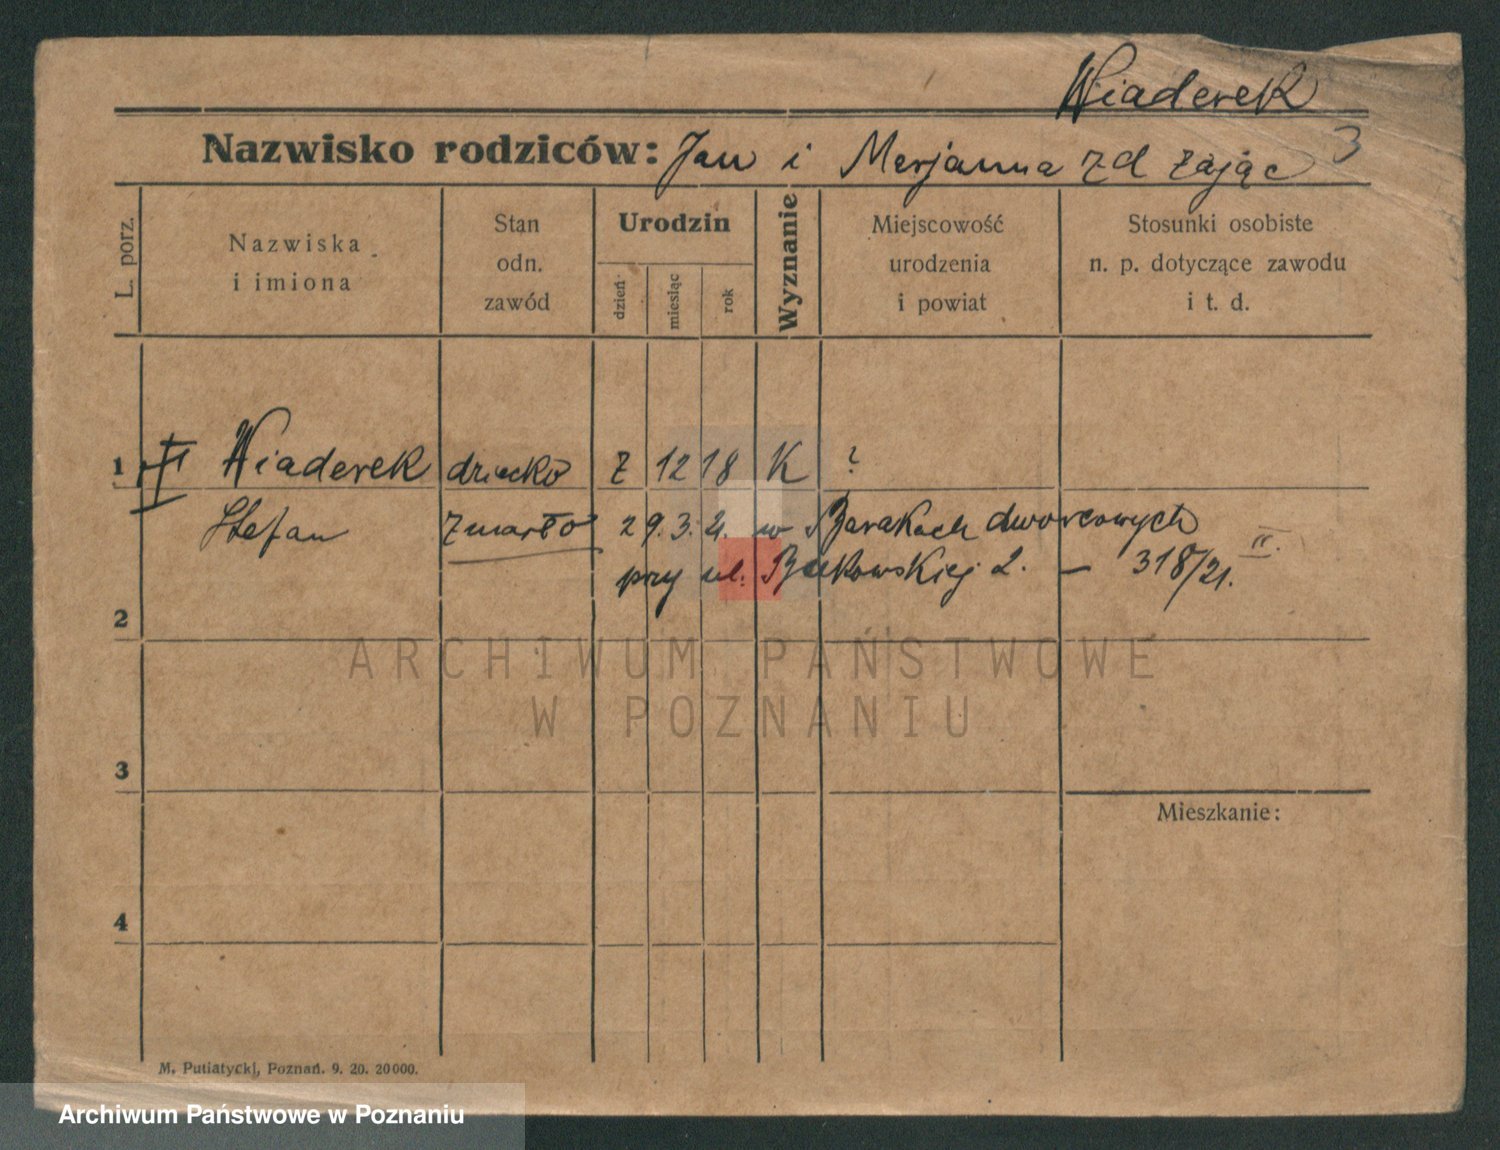 Wiaderek
Nazwisko rodziców: Jan i Marjanna zd Zając 3
L. porz.
Nazwiska i imiona
Stan odn. zawód
Urodzin
dzień
miesiąc
rok
Wyznanie
Miejscowość urodzenia i powiat
Stosunki osobiste n. p. dotyczące zawodu i t. d.
1 Wiaderek dziecko 7 12 18 K ?
Stefan zmarło 29. 3. 21. w Barakach dworcowych
przy ul. Bukowskiej 2. — 318/21. II.
2
3
Mieszkanie:
4
ARCHIWUM PAŃSTWOWE
W POZNANIU
M. Putiatycki, Poznań. 9. 20. 20000.
Archiwum Państwowe w Poznaniu